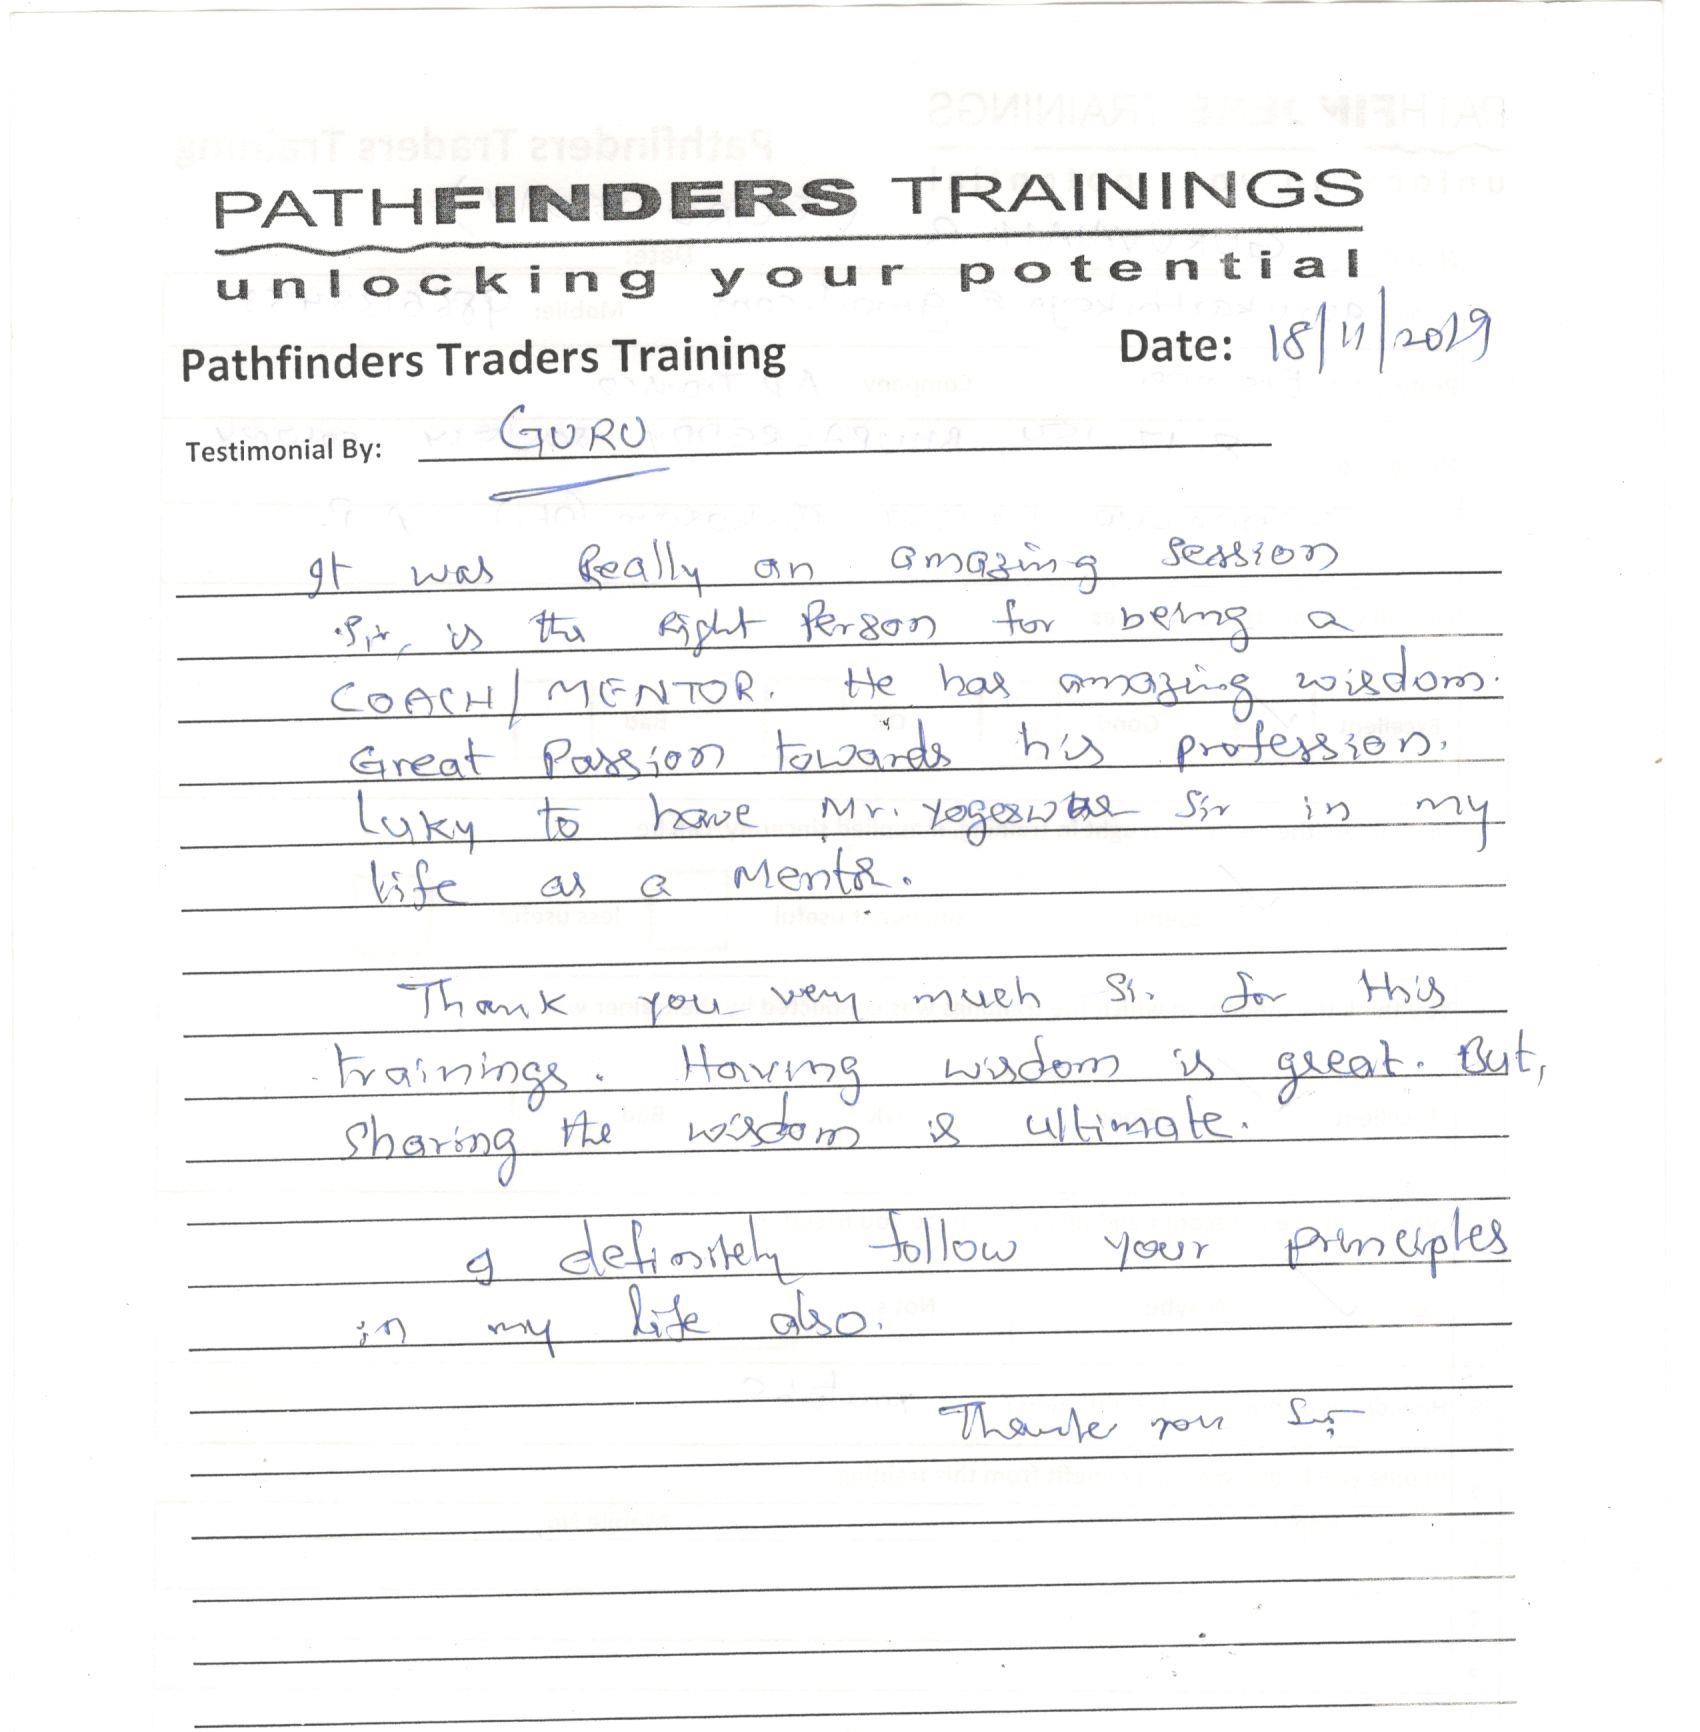 PATHFINDERS TRAININGS
unlocking your potential
Pathfinders Traders Training Date: 18/11/2019
Testimonial By: GURU
It was Really an amazing session
Sir, is the Right Person for being a
COACH/MENTOR. He has amazing wisdom.
Great Passion towards his profession.
Luky to have Mr. Sir in my
life as a Mentor.
Thank you very much Sir for this
trainings. Having wisdom is great. But,
Sharing the wisdom is ultimate.
I definitely follow your principles
in my life also.
Thank you Sir